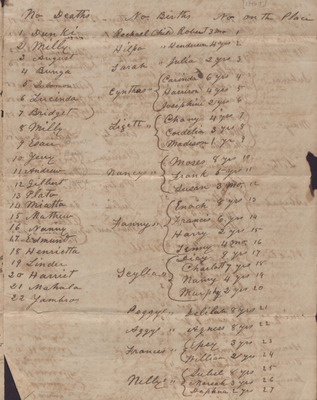 No Deaths No Births No on the Place
1 Dunkin Rachael Child Robert 3 mo. 1
2 Milly Hilpa " Henderson 4 yrs 2
3 August Sarah " Julia 2 yrs 3
4 Bunga Cynthia " Carinda 6 yrs 4
5 Solomon Harrison 4 yrs 5
6 Lucinda Josephine 2 yrs 6
7 Bridget Chany 4 yrs 7
8 Milly Lizett " Cordelia 3 yrs 8
9 Isaac Madison 1 yr 9
10 Jerry Moses 8 yrs 10
11 Andrew Nancy " Frank 5 yrs 11
12 Gilbert Susan 3 mo. 12
13 Plato Enoch 8 yrs 13
14 Francis 6 yrs 14
15 Mathew Fanny " Harry 2 yrs 15
16 Nanny Jenny 4 mo. 16
17 Edmund 9 yrs 17
18 Henrietta Scylla " Charlotte 7 yrs 18
19 Linder Nancy 4 yrs 19
20 Harriet Murphy 2 yrs 20
21 Mahala Peggy " Delilah 8 yrs 21
22 Aggy " Agnes 8 yrs 22
Frances " 3 yrs 23
William 2 yrs 24
Nelly " 8 yrs 25
26
Daphne 2 yrs 27